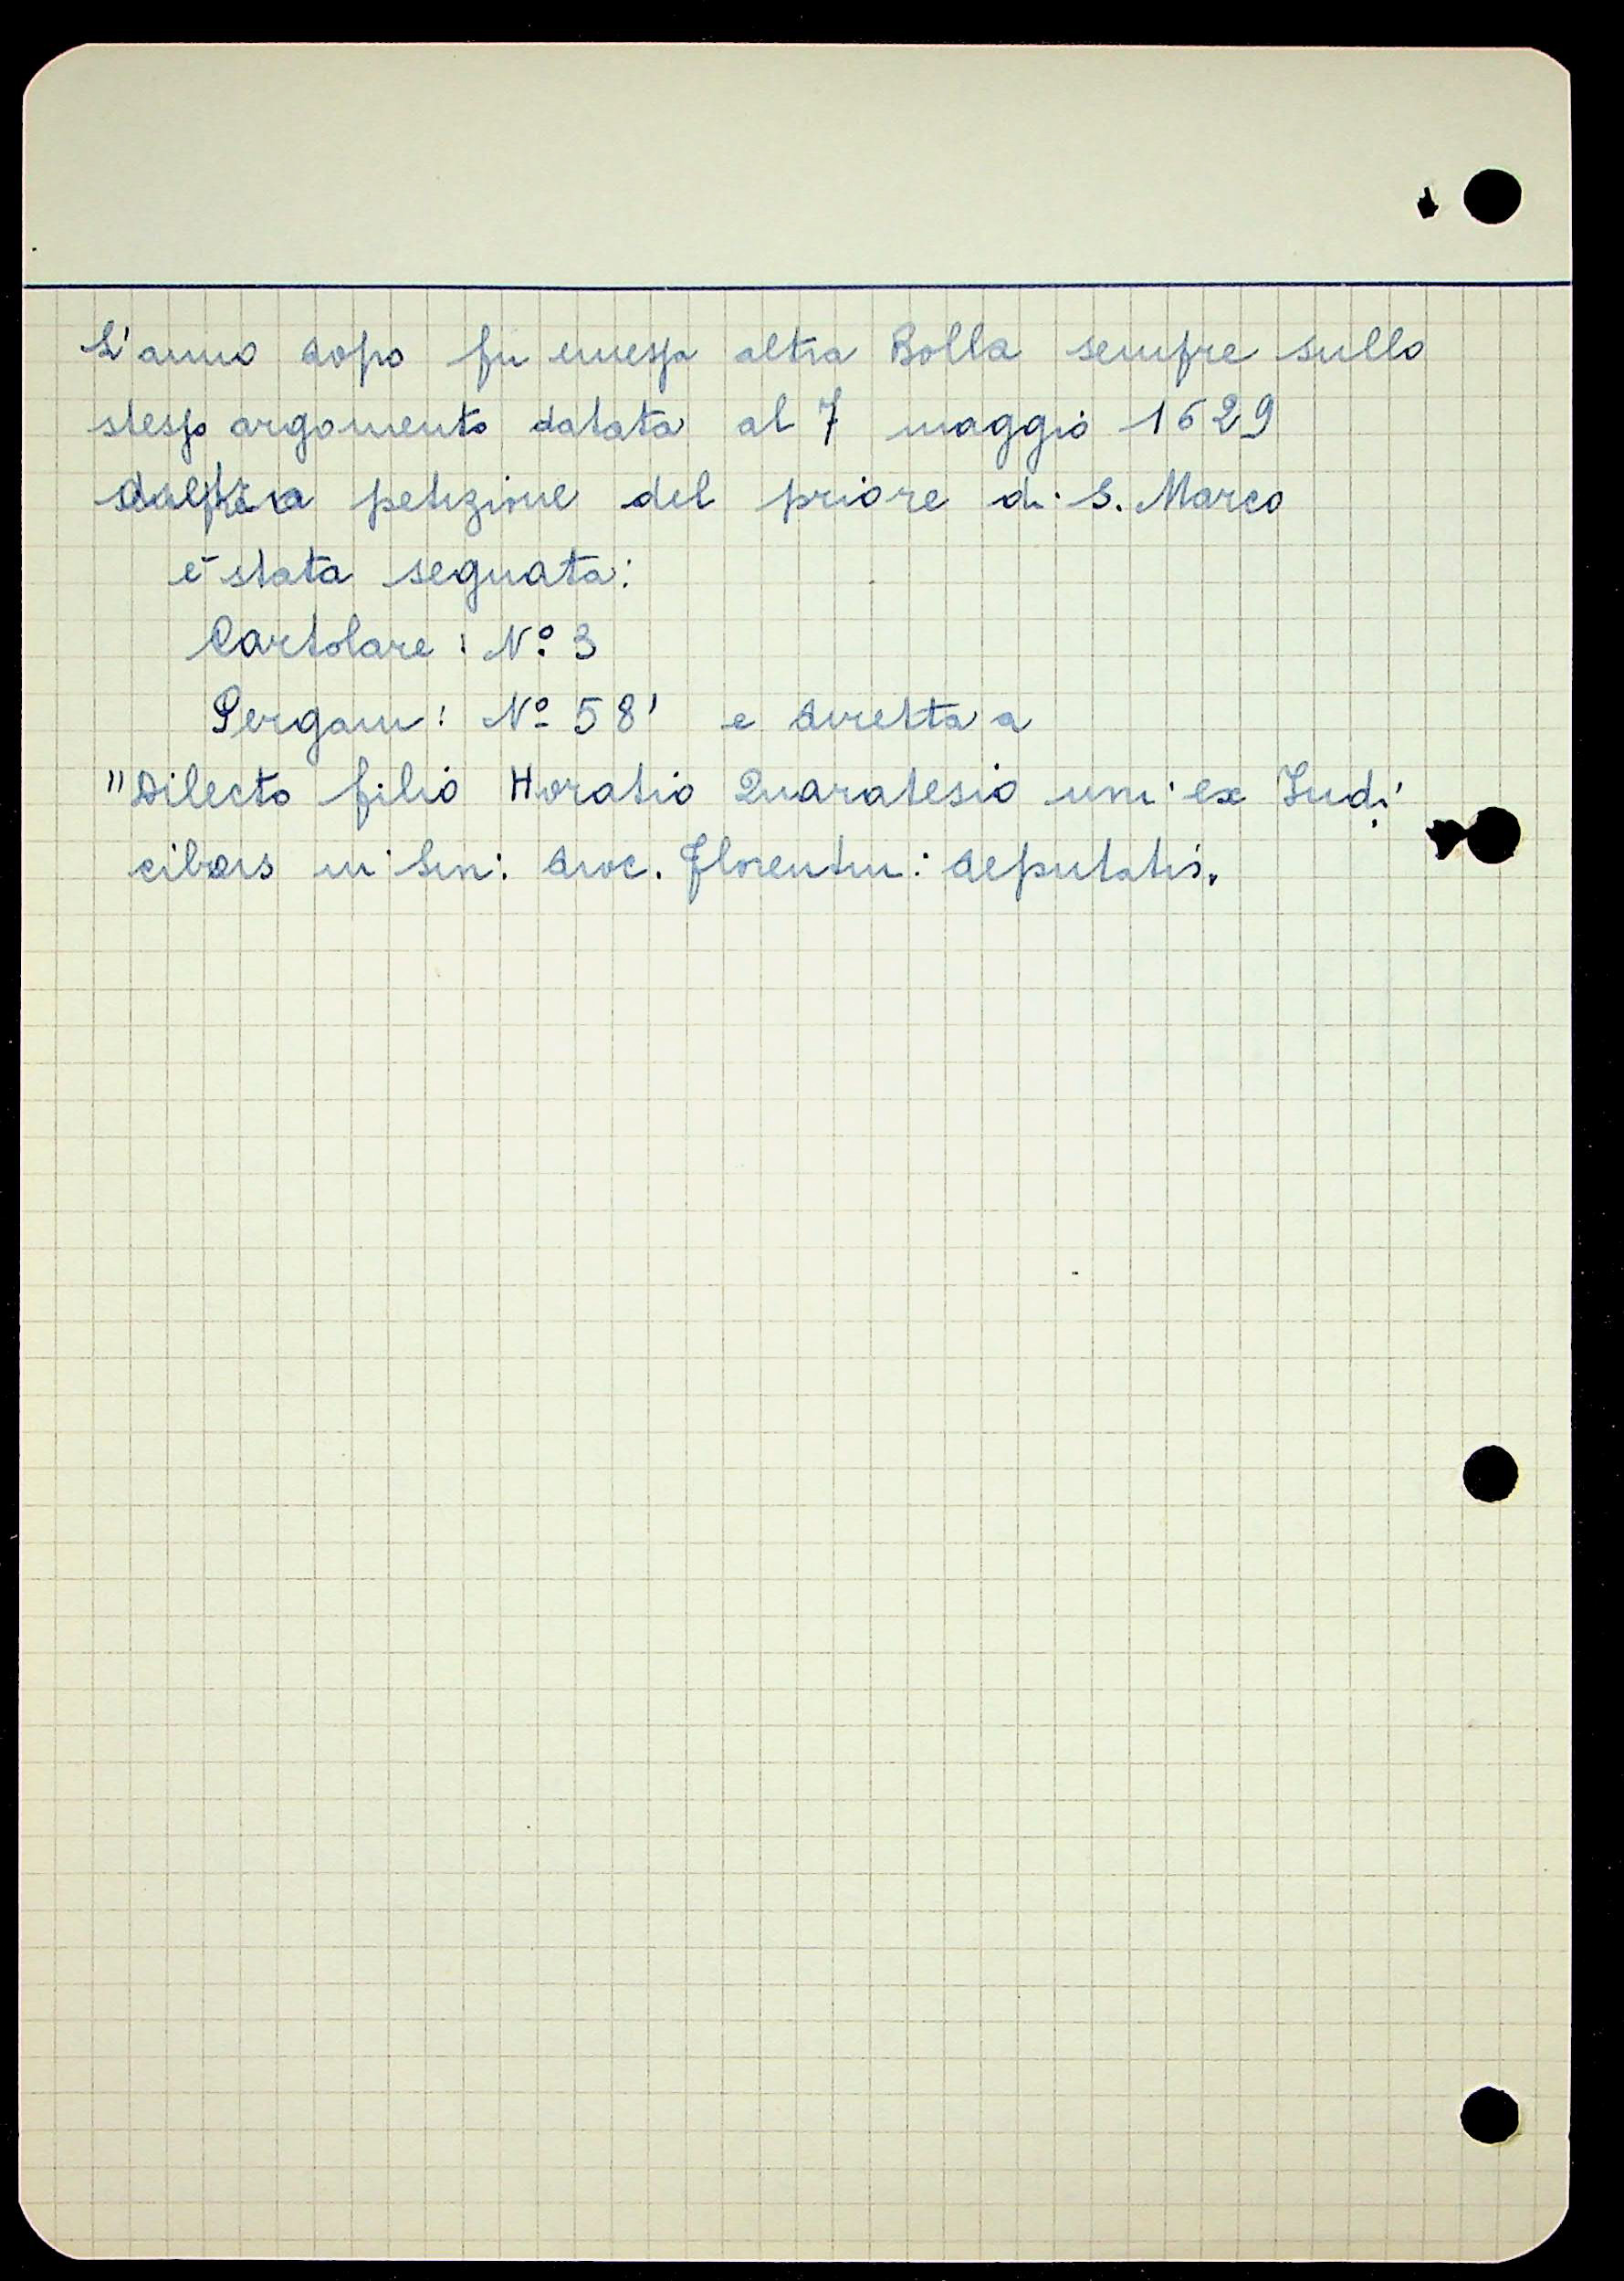 L'anno dopo fu emessa altra Bolla sempre sullo
stesso argomento datata al 7 maggio 1629
petizione del priore di S. Marco
è stata segnata:
Cartolare: Nº 3
Pergam: Nº 58' e diretta a
"Dilecto filio Horatio Quaratesio uni ex Judi
cibus in Sin: dioc. Florentin: deputatis.